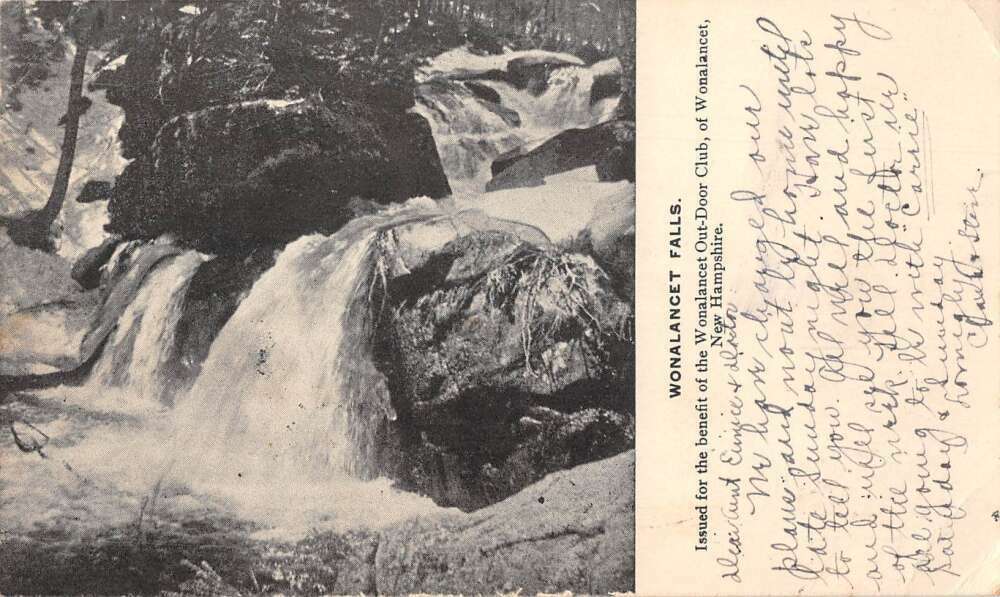 WONALANCET FALLS.
Issued for the benefit of the Wonalancet Out-Door Club, of Wonalancet,
New Hampshire.
Dear Aunt Eunice & Doctor
We have changed our
plans and not home until
late Sunday night. Have lots
to tell you. All well and happy
and will see you the first
of the week. Tell doctor we
are going to be with "Carrie"
Saturday & Sunday
Lovingly